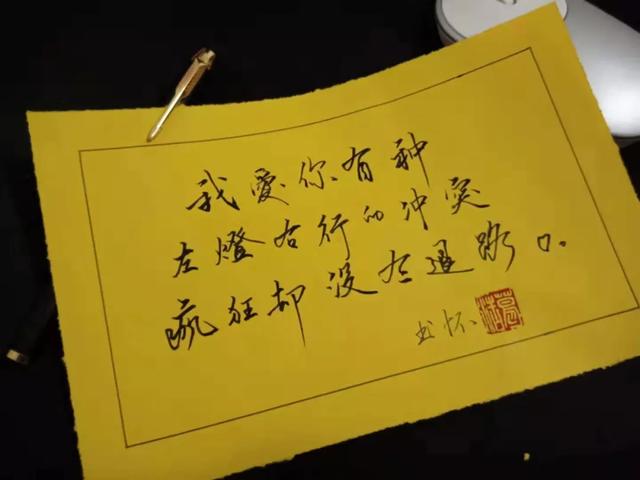 我愛你有种
左燈右行的冲突
疯狂却没有退路。
书怀